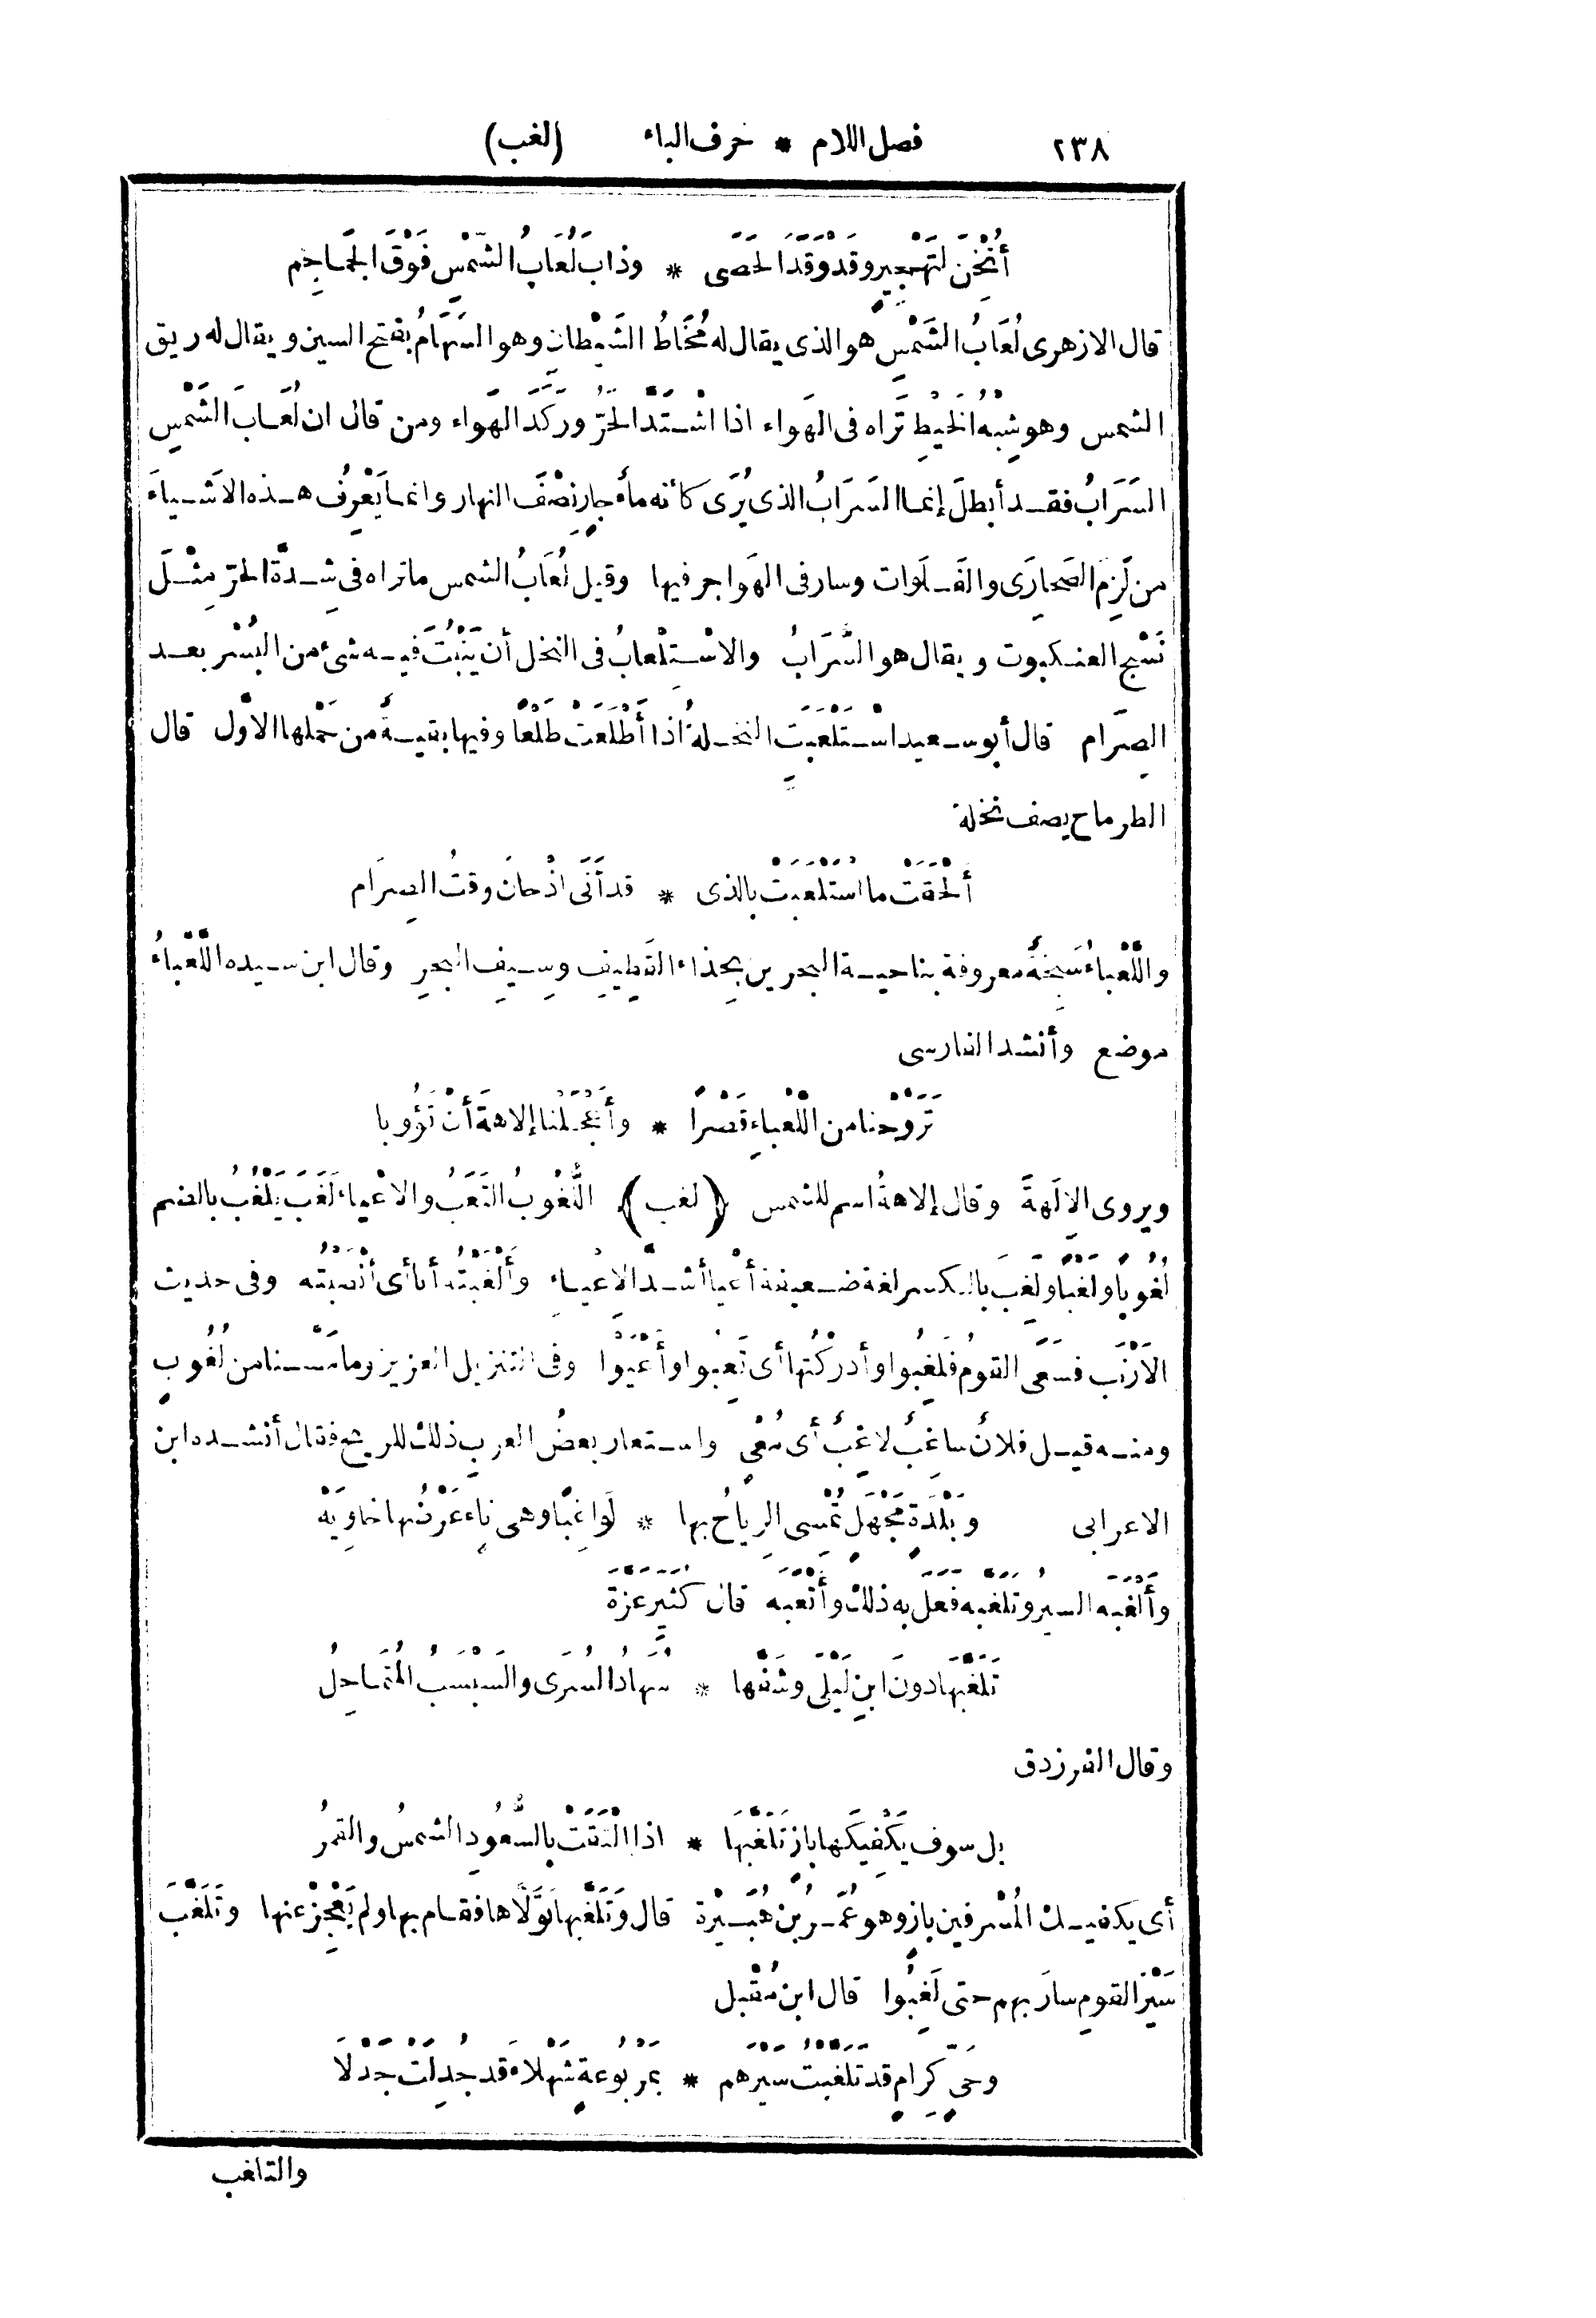 ٢٣٨ فصل اللام * حرف الباء (لغب)
أُنِخْنَ لتَهْجِيرٍ وقد وَقَدَ الحَصَى * وذابَ لُعَابُ الشَّمْسِ فَوْقَ الجَمَاجِمِ
قال الازهرى لُعَابُ الشَّمْسِ هو الذى يقال له مُخَاطُ الشَّيْطانِ وهو السَّهَامُ بفتح السين ويقال له ريق
الشمس وهو شِبْهُ الخَيْطِ تَراه فى الهَواء اذا اشْتَدَّ الحَرُّ ورَكَدَ الهَواء ومن قال ان لُعَابَ الشَّمْسِ
السَّرَابُ فقد أبطلَ إنما السَّرَابُ الذى يُرَى كأنه ماءٌ جارٍ نِصْفَ النهار وانما يَعْرِفُ هذه الاَشياءَ
من لَزِمَ الصَّحارَى والفَلَوات وسار فى الهَواجر فيها وقيل لُعَابُ الشمس ما تراه فى شِدَّة الحرّ مِثْلَ
نَسْجِ العنكبوت ويقال هو السَّرَابُ والاسْتِلْعابُ فى النخل أن يَنْبُتَ فيه شىء من البُسْر بعد
الصِّرَام قال أبو سعيد اسْتَلْعَبَتِ النخلةُ اذا أَطْلَعَتْ طَلْعًا وفيها بقيةٌ من حَمْلِها الاَوَّل قال
الطرماح يصف نخلة
أَلْحَقَتْ ما اسْتَلْعَبَتْ بالذى * قد أَنَى اذْ حانَ وقتُ الصِرَام
واللَّعْباءُ سَبِخَةٌ معروفة بناحية البحرين بِحِذاء القَطِيفِ وسِيفِ البحرِ وقال ابن سيده اللَّعْباءُ
موضع وأنشد الفارسى
تَرَوَّحْنا من اللَّعْباءِ قَصْرًا * وأَعْجَلْنا إلاهةَ أنْ تَؤُوبا
ويروى الإلَهةَ وقال إلاهةُ اسم للشمس (لغب) اللُّغُوبُ التَّعَبُ والاعْياء لَغَبَ يَلْغُبُ بالضم
لُغُوبًا ولَغْبًا ولَغِبَ بالكسر لغة ضعيفة أَعْيا أشدَّ الاعْياءِ وأَلْغَبْتُه أنا أى أَنْصَبْتُه وفى حديث
الاَرْنَب فسَعَى القومُ فلَغِبُوا وأدركْتُها أى تَعِبُوا وأَعْيَوْا وفى التنزيل العزيز وما مَسَّنا من لُغُوبٍ
ومنه قيل فلانٌ ساغبٌ لاغِبٌ أى مُعْىٍ واستعار بعضُ العرب ذلك للريح فقال أنشده ابن
الاعرابى وبَلْدَةٍ مَجْهَلٍ تُمْسِى الرِياحُ بها * لَواغِبًا وهى ناءٍ عَرْضُها خاوِيَهْ
وأَلْغَبَه السيرُ وتَلَغَّبه فَعَلَ به ذلك وأَتْعَبَه قال كُثَيِّرُ عَزَّةَ
تَلَغَّبَها دونَ ابنِ لَيْلَى وشَفَّها * سُهَادُ السُّرَى والسَّبْسَبُ المُتَمَاحِلُ
وقال الفرزدق
بل سوف يَكْفِيكَها بازٍ تَلَغَّبَها * اذا الْتَقَتْ بالسُّعُودِ الشمسُ والقمرُ
أى يكفيك المُسْرفين بازٍ وهو عُمَرُ بْنُ هُبَيْرة قال وتَلَغَّبها تَوَلَّاها فقام بها ولم يَعْجِزْ عنها وتَلَغَّبَ
سَيْرَ القومِ سارَ بهم حتى لَغِبُوا قال ابن مُقْبل
وحَىٍّ كِرامٍ قد تَلَغَّبتُ سَيْرَهم * بمَرْبُوعةٍ شَهْلاءَ قد جُدِلَتْ جَدْلَا
والتلغب